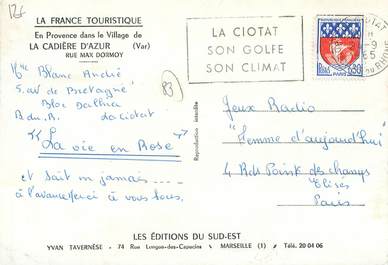 12€
LA FRANCE TOURISTIQUE
En Provence dans le Village de
LA CADIÈRE D'AZUR (Var)
RUE MAX DORMOY
Blanc André
5 av de Bretagne
Bloc Dalhia
B du R. La Ciotat
"La vie en Rose"
et sait on jamais......
à l'avance merci à vous tous.
83
LA CIOTAT
SON GOLFE
SON CLIMAT
PARIS
0,30
Reproduction interdite
Jeux Radio
"Femme d'aujourd'hui"
4 Rd Point des champs
Elisés
Paris
LES ÉDITIONS DU SUD-EST
YVAN TAVERNÈSE - 74 Rue Longue-des-Capucins - MARSEILLE (1) / Télé. 20 04 06